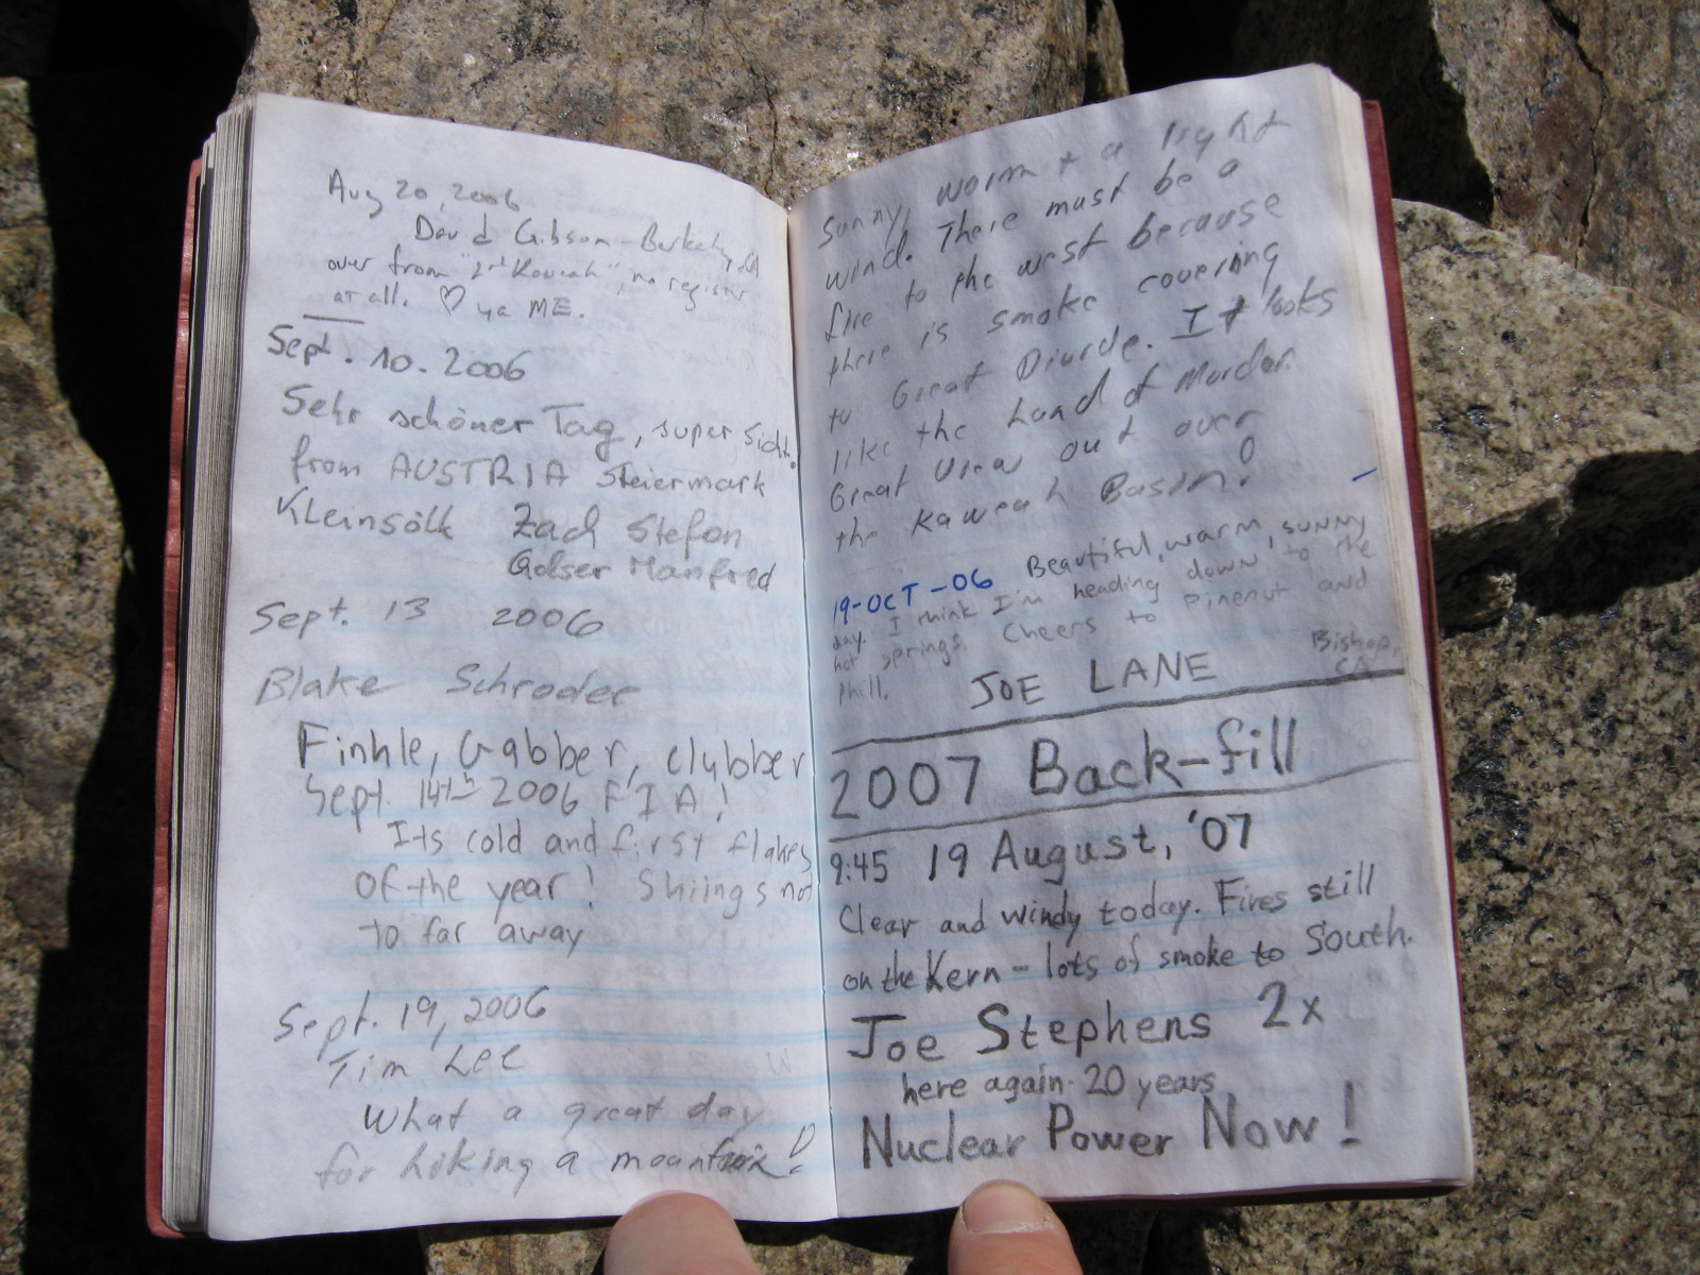 Aug 20, 2006
David Gibson - Berkeley, CA
over from "2nd Kaweah", no register
at all. ♡ ya ME.
Sept. 10. 2006
Sehr schöner Tag, super Sicht.
from AUSTRIA Steiermark
Kleinsölk Zach Stefan
Golser Manfred
Sept. 13 2006
Blake Schroder
Finkle, Gabber, Clubber
Sept. 14th 2006 F I A!
Its cold and first flakes
of the year! Skiings not
to far away
Sept. 19, 2006
Tim Lee
What a great day
for hiking a mountain!
Sunny, warm + a light
wind. There must be a
fire to the west because
there is smoke covering
to Great Divide. It looks
like the Land of Mordor.
Great View out over
the Kaweah Basin!
19-OCT-06 Beautiful, warm, sunny
day. I think I'm heading down to the
hot springs. Cheers to Pinenut and
Phill. JOE LANE Bishop, CA
2007 Back-fill
9:45 19 August, '07
Clear and windy today. Fires still
on the Kern - lots of smoke to South.
Joe Stephens 2x
here again. 20 years
Nuclear Power Now!